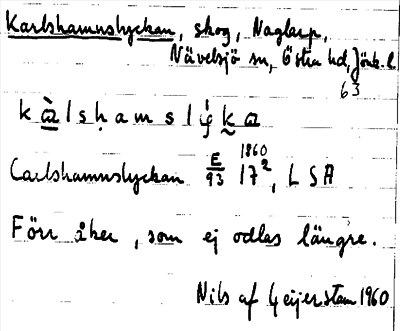 Karlshamnslyckan, skog, Naglarp,
Nävelsjö sn, Östra hd, Jönk. l.
63
Carlshamnslyckan E/93 1860 17², LSA
Förr åker, som ej odlas längre.
Nils af Geijerstam 1960